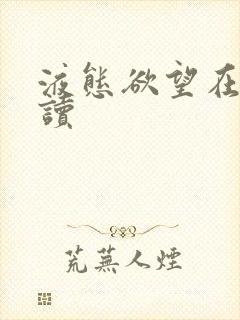 液態欲望在
讀
荒蕪人煙